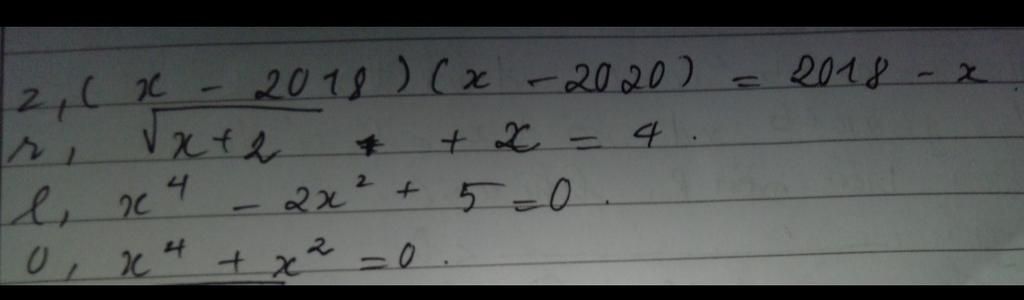 z, ( x - 2018 ) ( x - 2020 ) = 2018 - x
r, √x+2 + x = 4 .
l, x⁴ - 2x² + 5 = 0 .
0, x⁴ + x² = 0 .